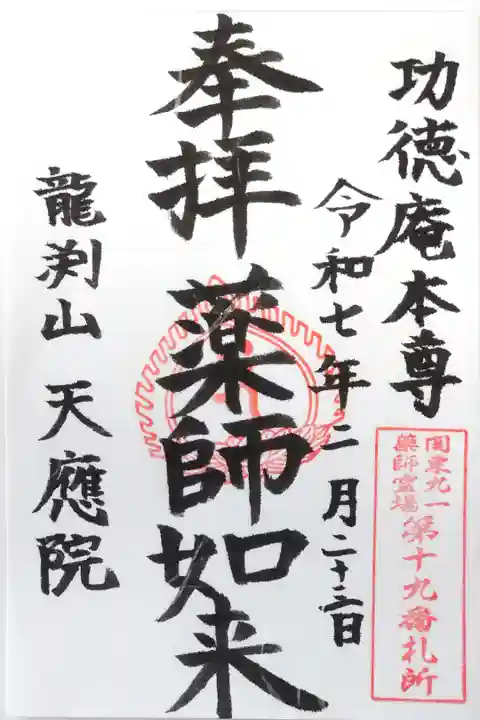 功徳庵本尊
関東九一
薬師霊場
第十九番札所
令和七年二月二十三日
奉拝 薬師如来
龍渕山 天應院